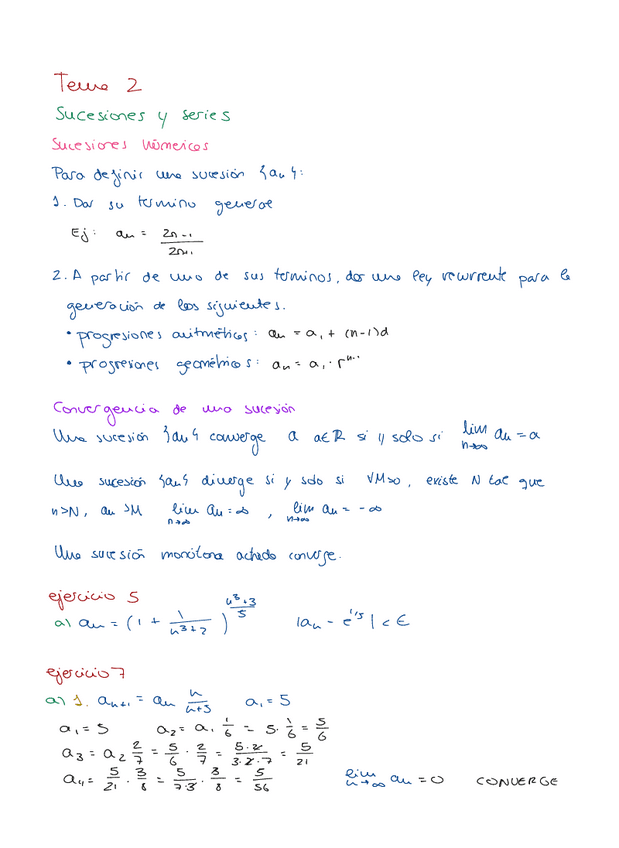 Tema 2
Sucesiones y series
Sucesiones númericas
Para definir una sucesión {an}:
1. Dar su termino general
Ej: an = 2n-1 / 2n+1
2. A partir de uno de sus terminos, dar una ley recurrente para la
generación de los siguientes.
• progresiones aritméticas: an = a1 + (n-1)d
• progresiones geométricas: an = a1 · r^n-1
Convergencia de una sucesión
Una sucesión {an} converge a a∈R si y solo si lim n→∞ an = a
Una sucesión {an} diverge si y solo si ∀M>0, existe N tal que
n>N, an >M lim n→∞ an = ∞ , lim n→∞ an = -∞
Una sucesión monótona acotada converge.
ejercicio 5
a) an = (1 + 1/(n^3+2))^((n^3+3)/5) |an - e^1/5| < ε
ejercicio 7
a) 1. an+1 = an n/(n+5) a1 = 5
a1 = 5 a2 = a1 1/6 = 5 · 1/6 = 5/6
a3 = a2 2/7 = 5/6 · 2/7 = 5·2/3·2·7 = 5/21
a4 = 5/21 · 3/8 = 5/7·3 · 3/8 = 5/56 lim n→∞ an = 0 CONVERGE